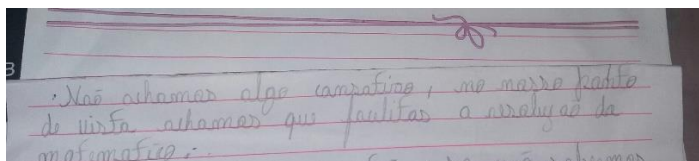 · Não achamos algo campatino, no nosso ponto
de vista achamos que facilitas a resolução da
matematica.